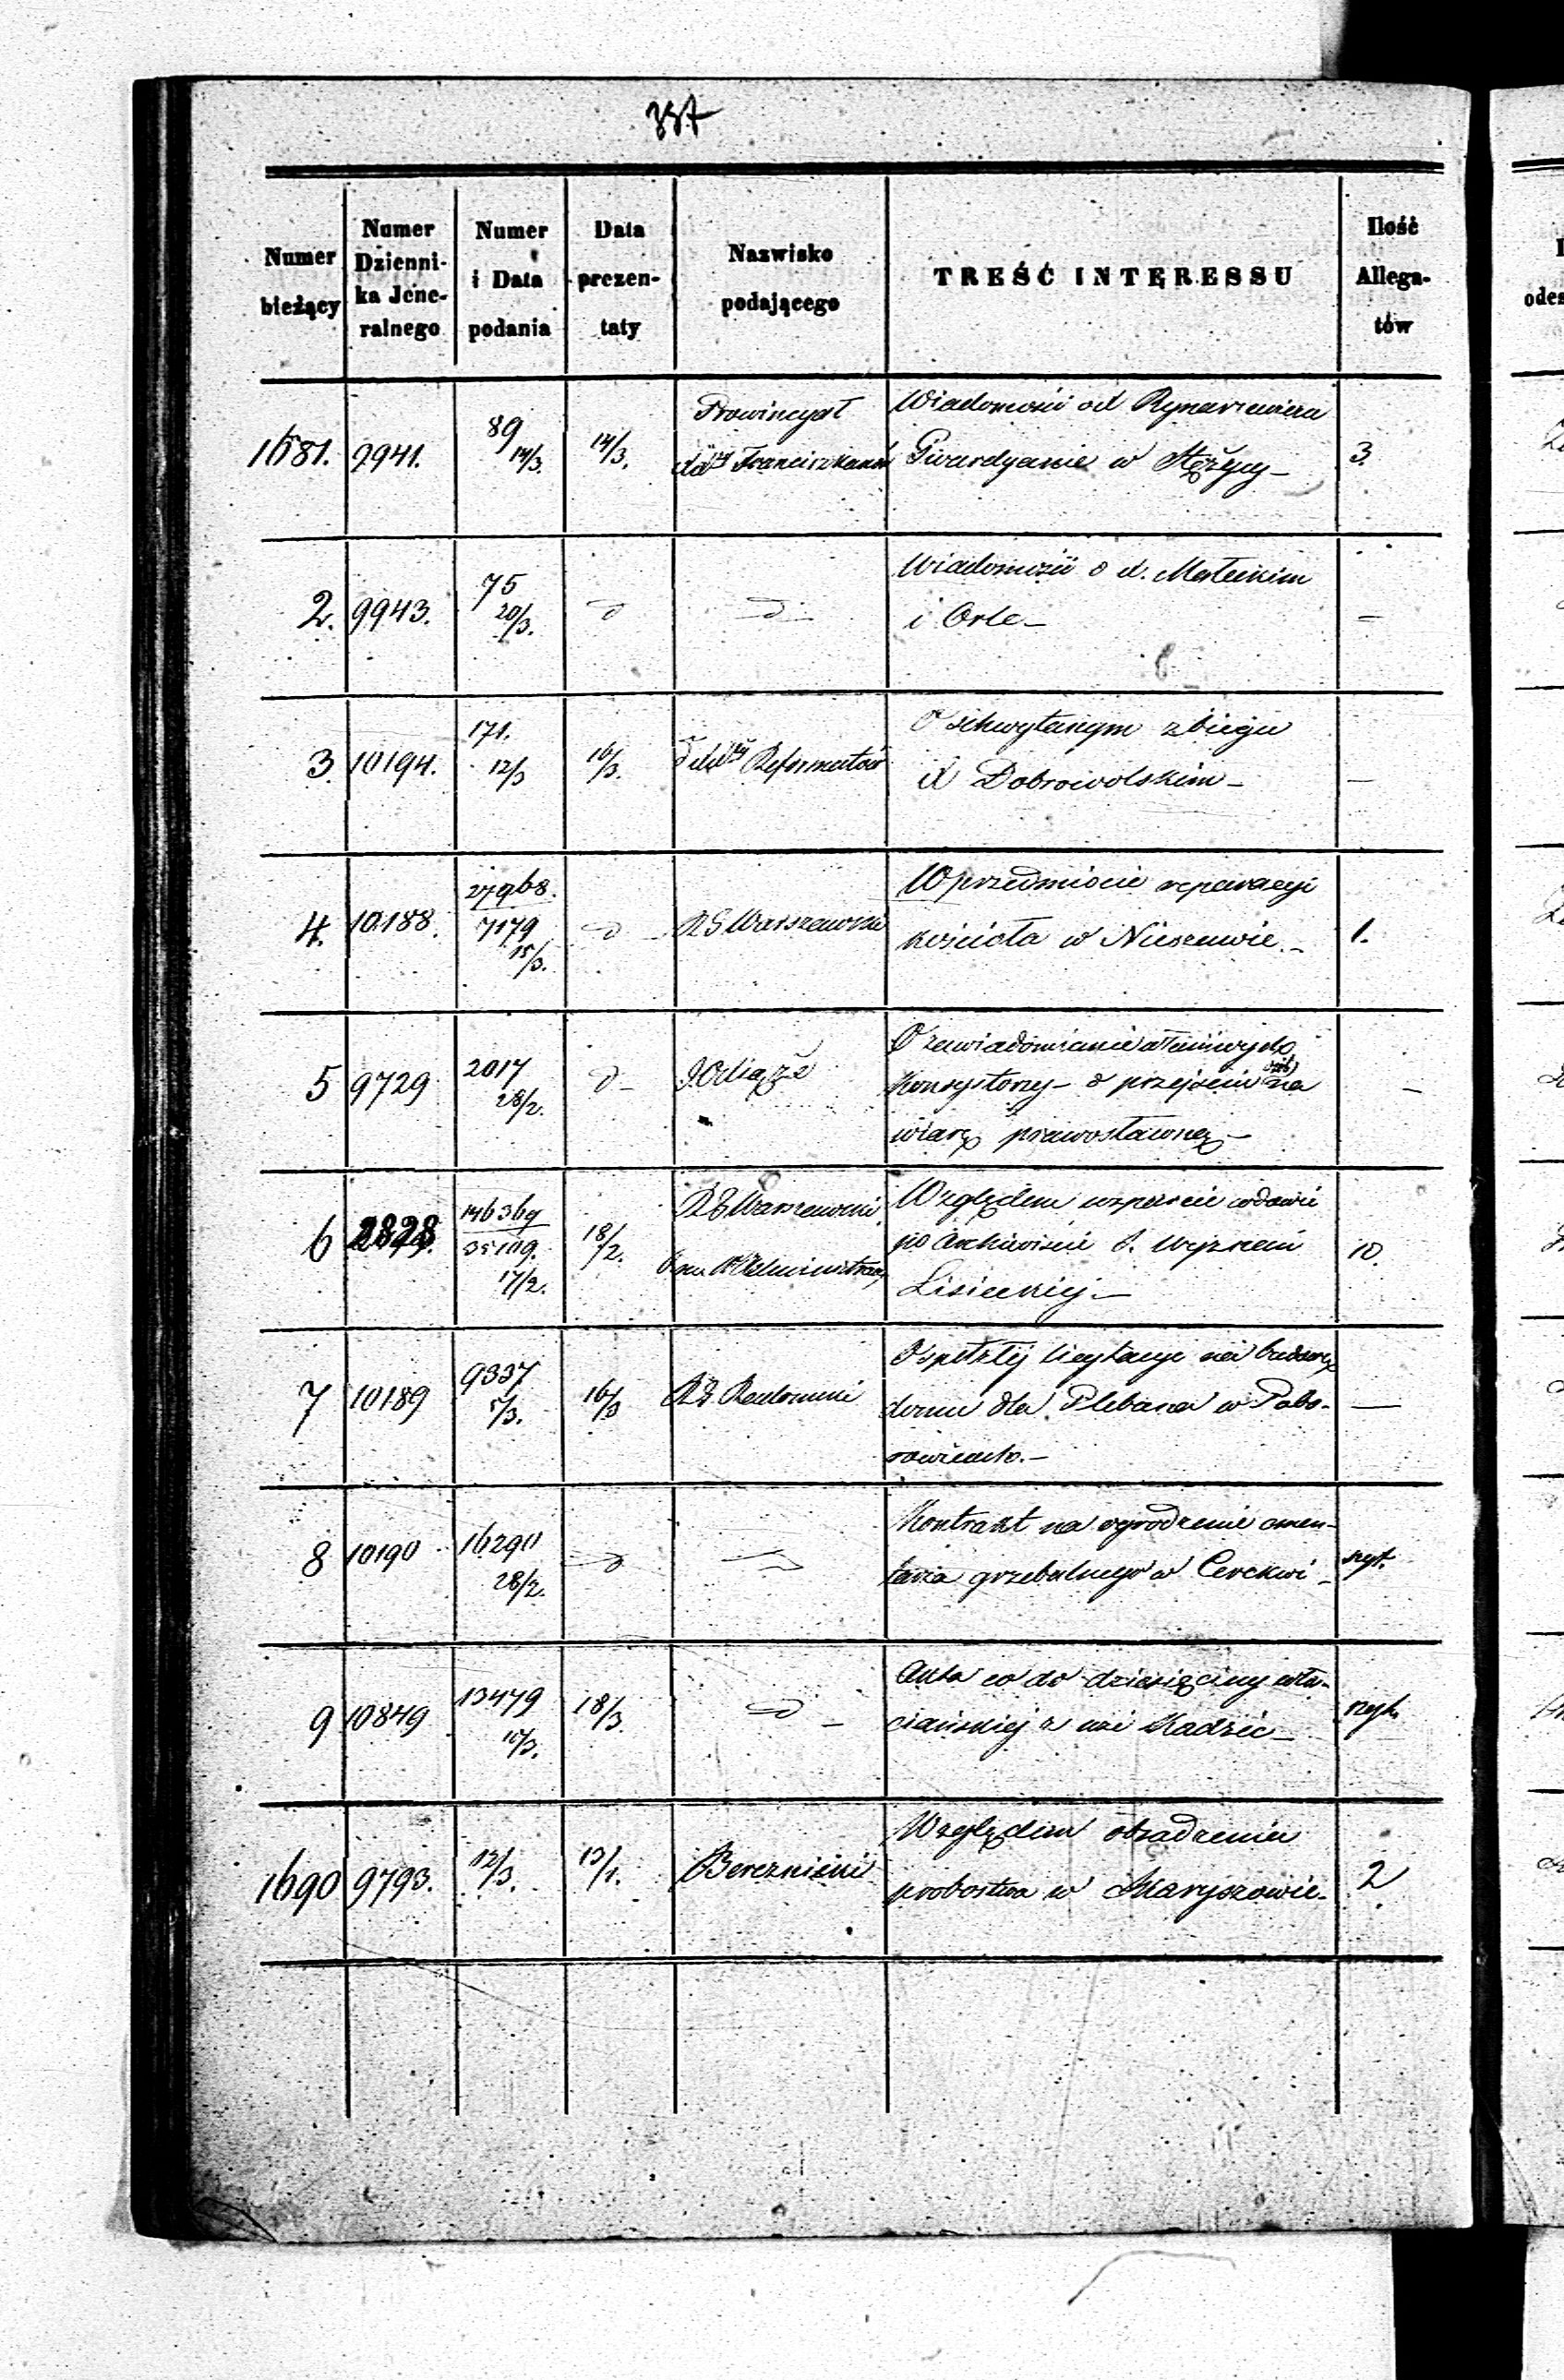 337
Numer bieżący
Numer Dzienni-ka Jene-ralnego
Numer i Data podania
Data prezen-taty
Nazwisko podającego
TREŚĆ INTERESSU
Ilość Allega-tów
1681. 9941. 89 14/3. 14/3. Prowincyał Franciszkanów Wiadomości od Rynarzewicza 3.
Gwardyanie w Stężycy
2. 9943. 75 20/3. d d Wiadomości o d. Małeckim
i Orle
3 10194. 171. 12/3 16/3. Reformatów O schwytanym zbiegu
Dobrowolskim
4. 10188. 27968. 7179 15/3. d RG Warszawski W przedmiocie reparacyi 1.
kościoła w Nieszawie.
5 9729 2017 28/2. d O zawiadomianie
Konsystorzy o przejściu osób na
wiarę prawosławną
6 2828 146369 35109. 17/2. 18/2. RG Warszawski Względem wsparcie wdowie 10.
po Archiwiście
Lisieckiej
7 10189 9337 5/3. 16/3 RG Radomski O spełzłej licytacyi na budowę
domu dla Plebana w Pabo-
rowicach.
8 10190 16290 28/2. d Kontrakt na ogrodzenie cmen-
tarza grzebalnego w Cerekwi szyt.
9 10849 13479 18/3. d Akta co do dziesięciny wło- szyt.
ciańskiej z wsi Kadzic
1690 9793. 12/3. 13/1. Bereznicki Względem obsadzenia 2
probostwa w Maryszowie.